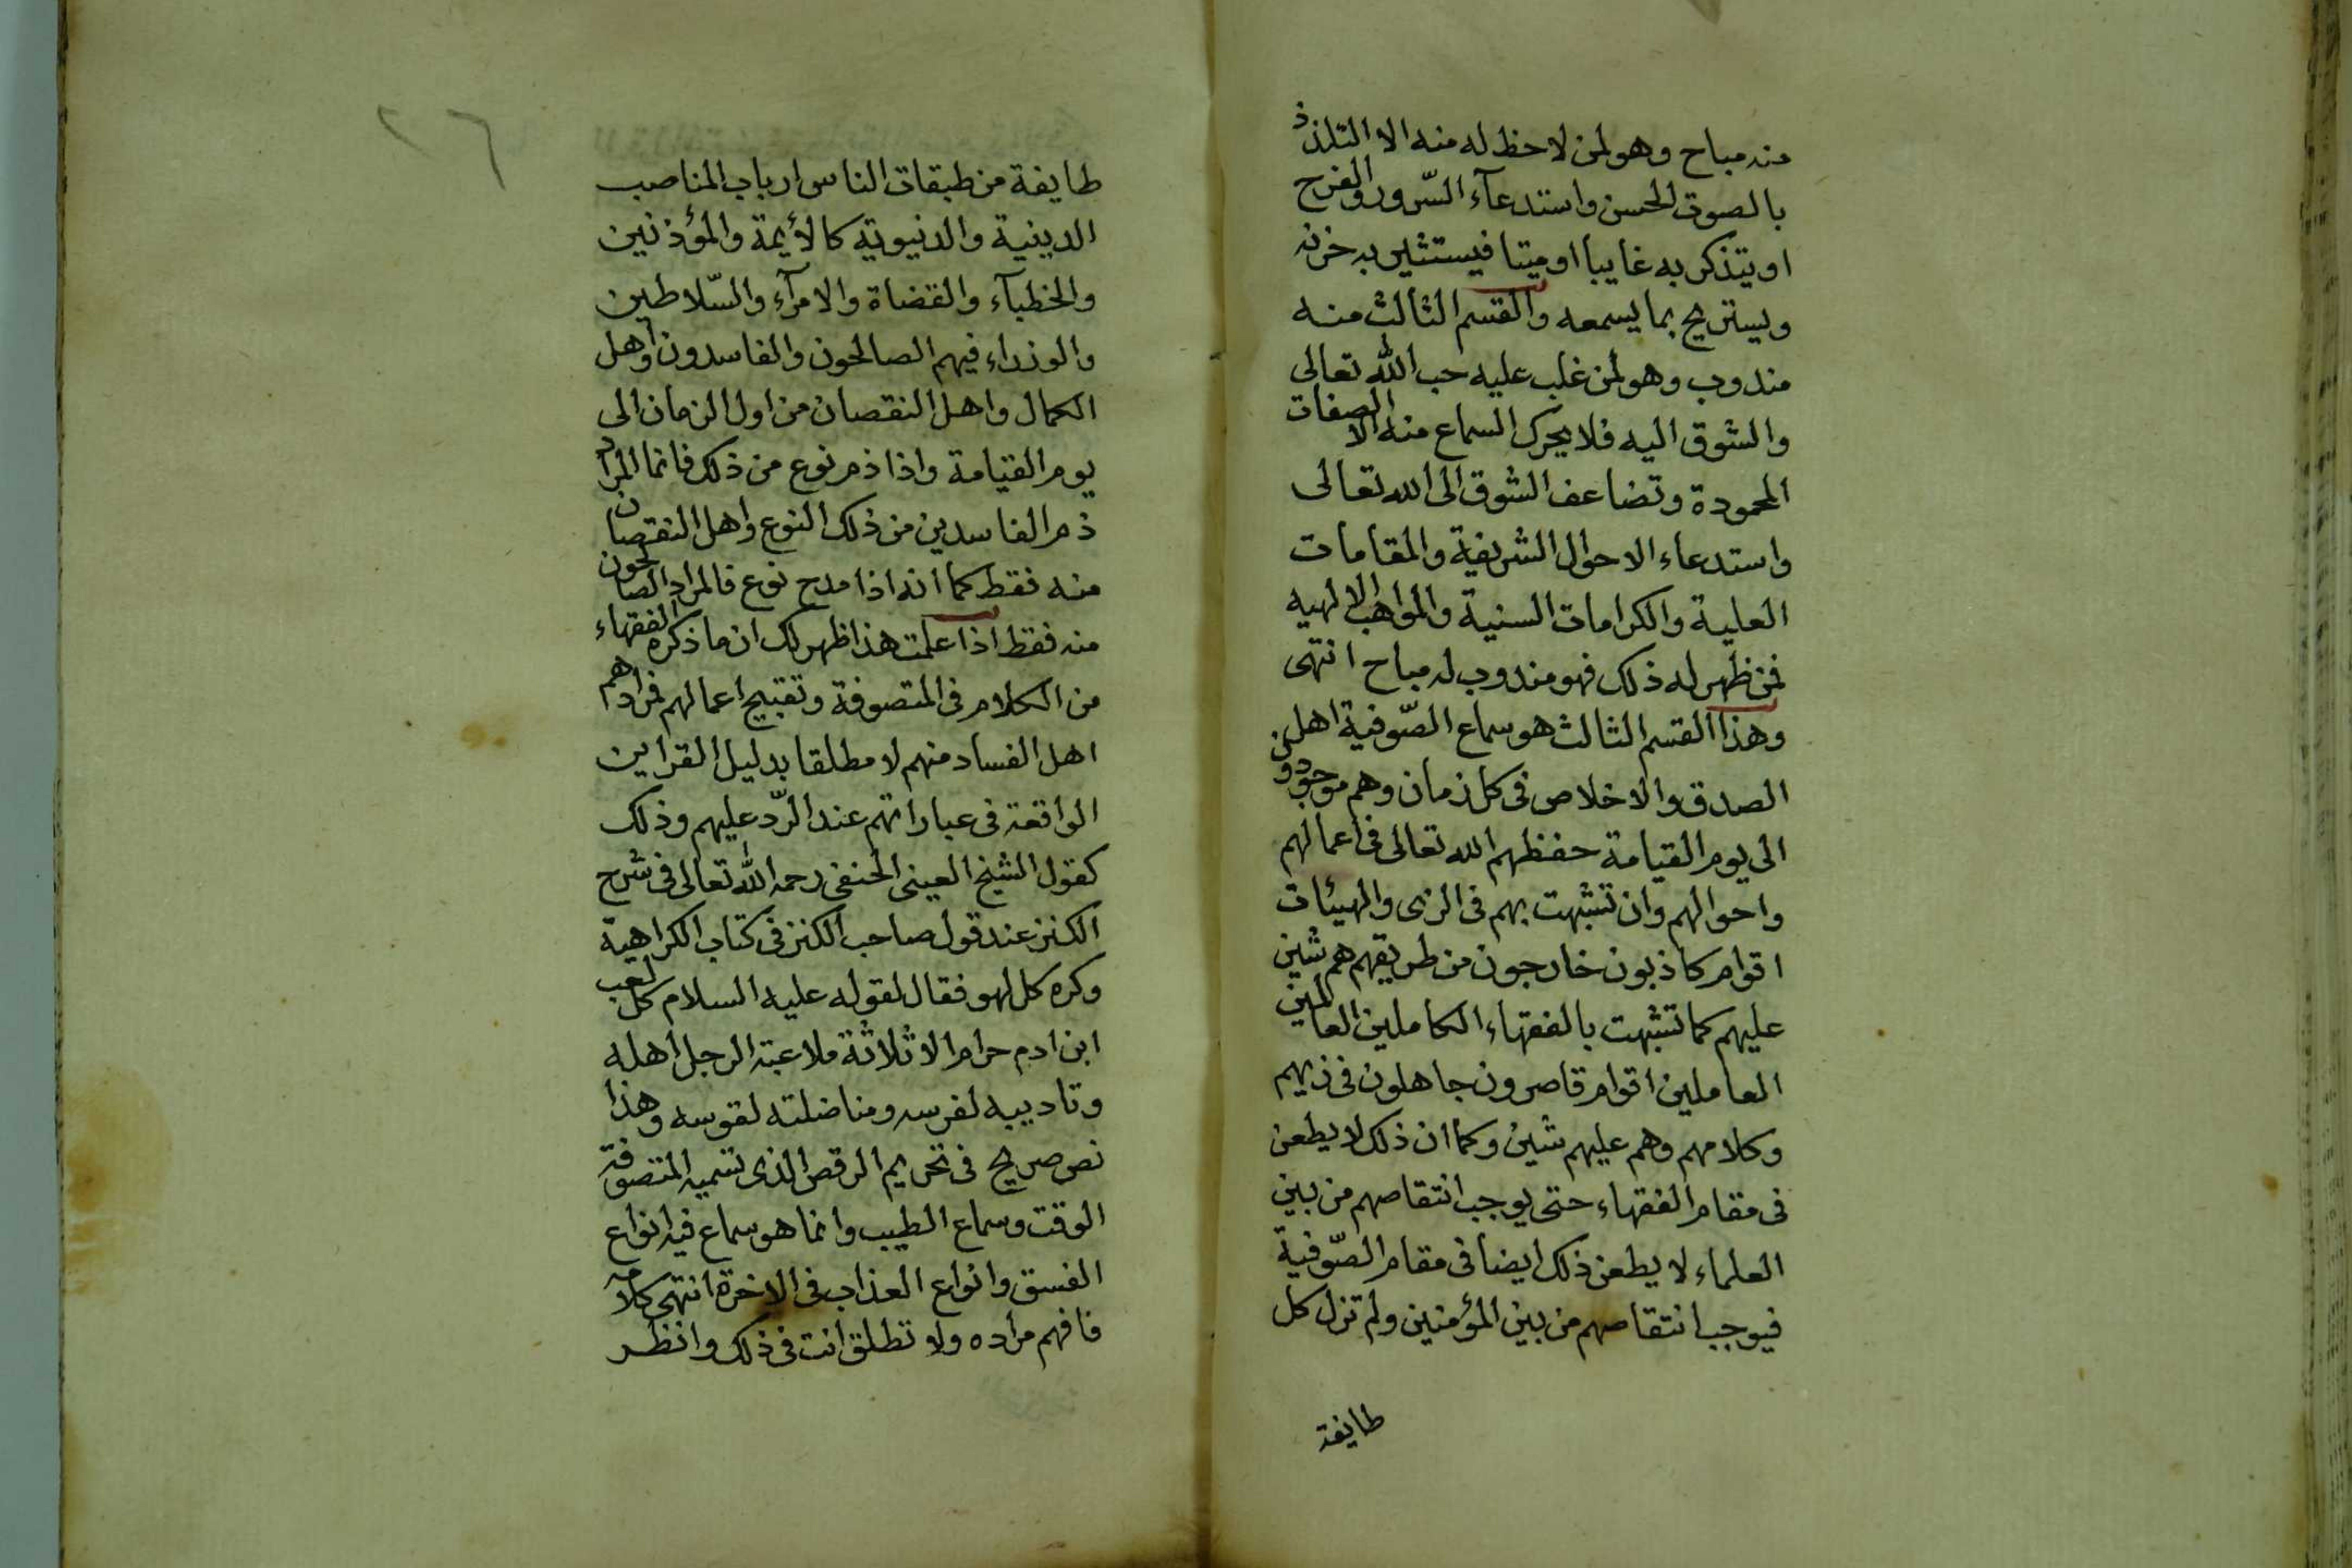 منه مباح وهو لمن لاحظ له منه الا التلذذ
بالصوت الحسن واستدعآء السّرور والفرح
او يتذكر به غايبا او ميتا فيستثير به حزنه
ويستريح بما يسمعه والقسم الثالث منه
مندوب وهو لمن غلب عليه حب الله تعالى
والشوق اليه فلا يحرك السماع منه الا الصفات
المحمودة وتضاعف الشوق الى الله تعالى
واستدعاء الاحوال الشريفة والمقامات
العلية والكرامات السنية والمواهب الالهيه
فمن ظهر له ذلك فهو مندوب له مباح انتهى
وهذا القسم الثالث هو سماع الصّوفية اهل
الصدق والاخلاص فى كل زمان وهم موجودون
الى يوم القيامة حفظهم الله تعالى فى اعمالهم
واحوالهم وان تشبهت بهم فى الزى والهيئات
اقوام كاذبون خارجون من طريقهم هم شين
عليهم كما تشبهت بالفقهاء الكاملين العالمين
العاملين اقوام قاصرون جاهلون فى زيهم
وكلامهم وهم عليهم شين وكما ان ذلك لا يطعن
فى مقام الفقهاء حتى يوجب انتقاصهم من بين
العلماء لا يطعن ذلك ايضا فى مقام الصّوفية
فيوجب انتقاصهم من بين المؤمنين ولم تزل كل
طايفة
٢٦
طايفة من طبقات الناس ارباب المناصب
الدينية والدنيوية كالأيمة والمؤذنين
والخطبآء والقضاة والامرآء والسّلاطين
والوزراء فيهم الصالحون والفاسدون واهل
الكمال واهل النقصان من اول الزمان الى
يوم القيامة واذا ذم نوع من ذلك فانما المراد
ذم الفاسدين من ذلك النوع واهل النقصان
منه فقط كما انه اذا مدح نوع فالمراد الصالحون
منه فقط اذا علمت هذا ظهر لك ان ما ذكره الفقهاء
من الكلام فى المتصوفة وتقبيح اعمالهم فمرادهم
اهل الفساد منهم لا مطلقا بدليل القراين
الواقعة فى عباراتهم عند الرّد عليهم وذلك
كقول الشيخ العينى الحنفى رحمه الله تعالى فى شرح
الكنز عند قول صاحب الكنز فى كتاب الكراهية
وكره كل لهو فقال لقوله عليه السلام كل لعب
ابن ادم حرام الا ثلاثة ملاعبة الرجل اهله
وتاديبه لفرسه ومناضلته لقوسه وهذا
نص صريح فى تحريم الرقص الذى تسميه المتصوفة
الوقت وسماع الطيب وانما هو سماع فيه انواع
الفسق وانواع العذاب فى الاخرة انتهى كلامه
فافهم مراده ولا تطلق انت فى ذلك وانظر